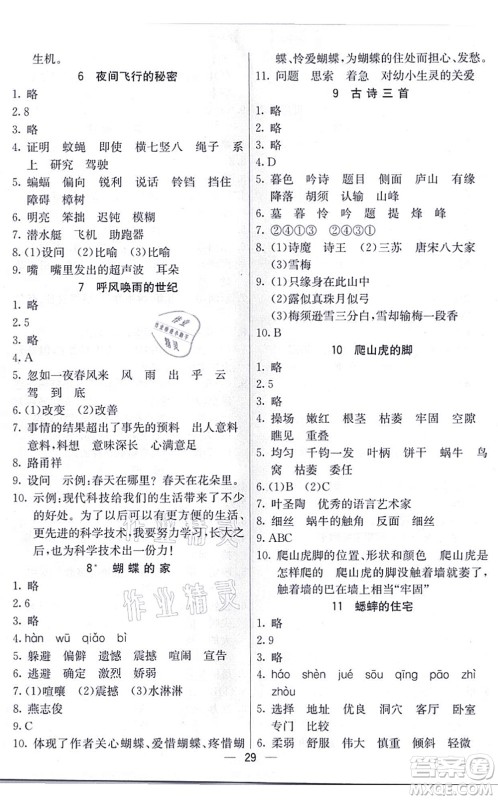 生机。
6 夜间飞行的秘密
1. 略
2.8
3. 略
4. 证明 蚊蝇 即使 横七竖八 绳子 系
上 研究 驾驶
5. 蝙蝠 偏向 锐利 诉说 铃铛 挡住
障碍 樟树
6. 明亮 笨拙 迟钝 模糊
7. 潜水艇 飞机 助跑器
8. (1)设问 (2)比喻 (3)比喻
9. 嘴 嘴里发出的超声波 耳朵
7 呼风唤雨的世纪
1. 略
2.8
3. 略
4. A
5. 忽如一夜春风来 风 雨 出 乎 云
驾 到
6. (1)改变 (2)改善
7. 事情的结果超出了事先的预料 出人意料
意料,料想 意味深长 心满意足
8. 路甬祥
9. 设问 示例:春天在哪里?春天在花朵里。
10. 示例:现代科技给我们的生活带来了不少
的好处。为了以后可以有更方便的生活、
更先进的科学技术,我要努力学习,长大大
也为科学技术出一份力!
8* 蝴蝶的家
1. 略
2.6
3. 略
4. hàn wū qiǎo bì
5. 躲避 偏僻 遗憾 震撼 喧闹 雨宣
6. 逃避 避难 遗憾 震撼
7. (1)喧嚷 (2)震撼 (3)水淋淋
8. 燕志俊
9. C
10. 体现了作者关心蝴蝶、爱惜蝴蝶、疼惜蝴
蝶、怜爱蝴蝶,为蝴蝶的住处而担心、发愁。
11. 问题 思索 着急 对幼小生灵的关爱
9 古诗三首
1. 略
2.8
3. 略
4. D
5. 暮色 吟诗 题目 侧面 庐山 有缘
降落 胡须 认输 山峰
6. 墓 暮 怜 吟 题 提 烽 峰
7. ②④①③ ②④③①
8. (1)诗魔 诗王 (2)三苏 唐宋八大家
(3)雪梅
9. (1)只缘身在此山中
(2)露似真珠月似弓
(3)梅须逊雪三分白 雪却输梅一段香
10. B
10 爬山虎的脚
1. 略
2.5
3. 略
4. 操场 嫩红 根茎 枯萎 牢固 空隙
瞧见 重叠
5. 均匀 千钧一发 叶柄 饼干 蜗牛 鸟
窝 痕迹 很多
6. (1)B (2)B
7. 叶圣陶 优秀的语言艺术家
8. 细丝 蜗牛的触角 反面 细丝
9. ABC
10. 爬山虎脚的位置、形状和颜色 爬山虎是
怎样爬的 爬山虎的脚没触着墙就萎了,
触着墙就“牢固”
11 蟋蟀的住宅
1. 略
2.9
3. 略
4. háo shèn jué sōu qīng pāo zhì
zhòu
5. 选择 住址 优良 洞穴 客厅 卧室
专门 比较
6. 柔弱 舒服 随遇而安 倾斜 毫不可惜
29
作业精灵